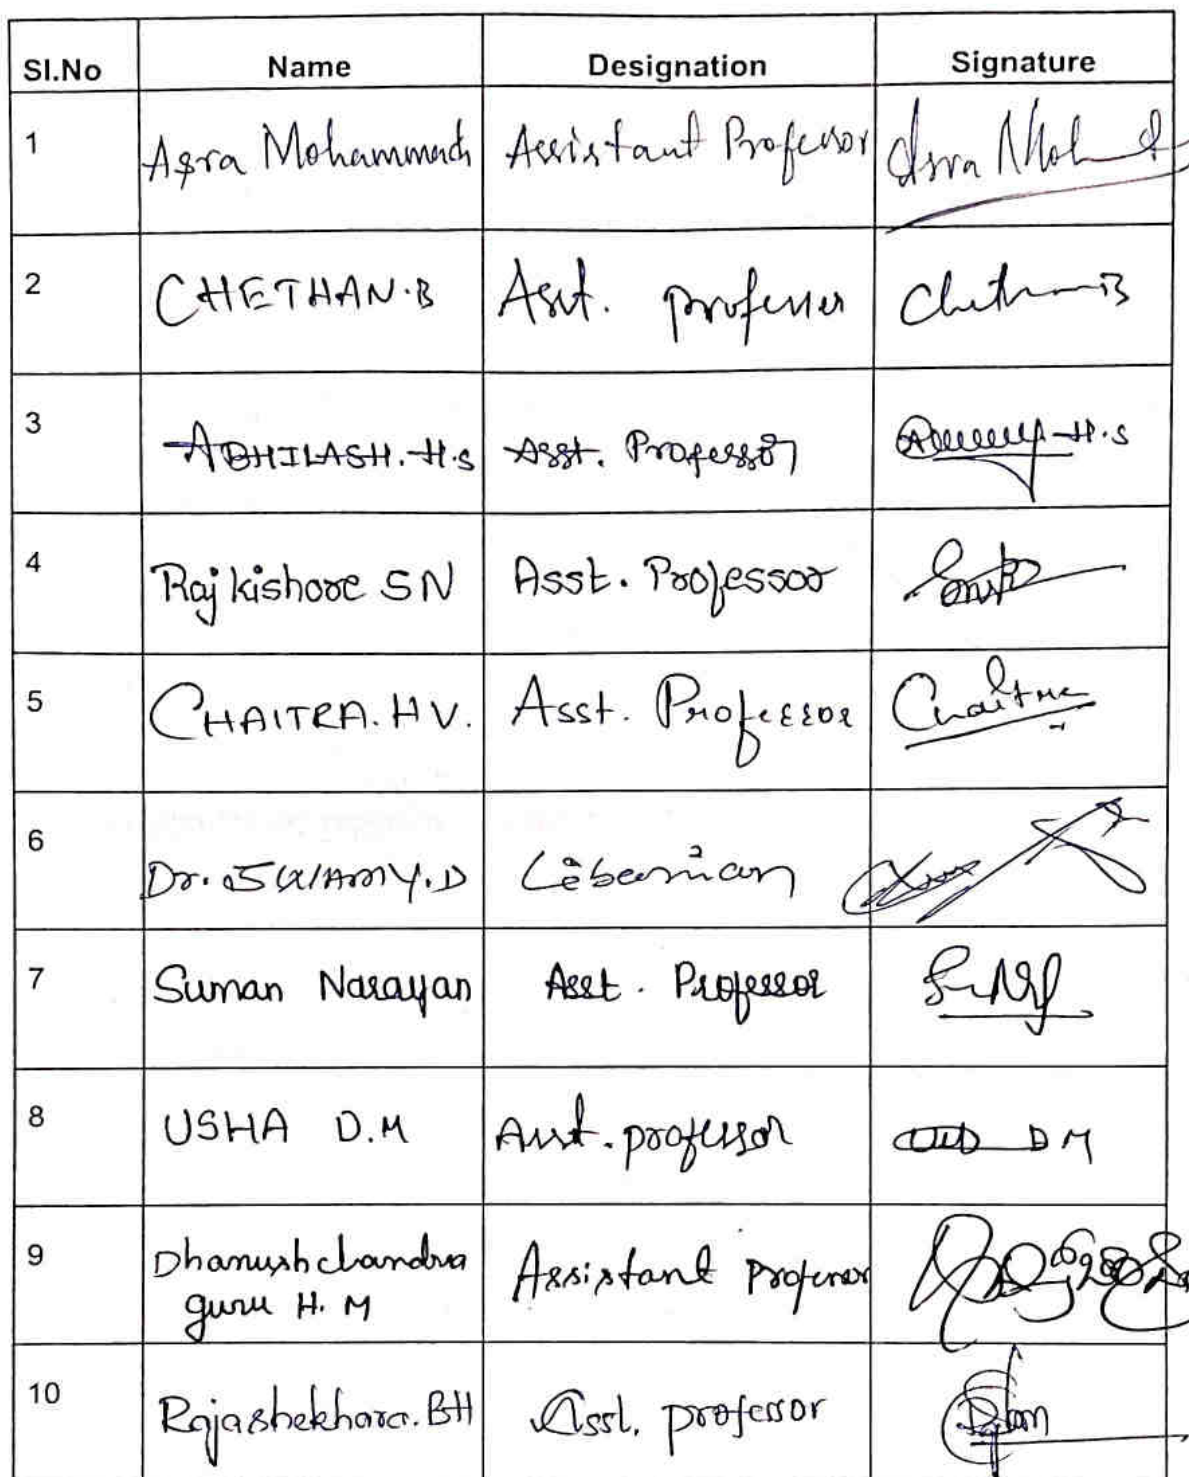 Sl.No Name Designation Signature
1 Asra Mohammadi Assistant Professor Asra Moh
2 CHETHAN.B Asst. professer Chethan B
3 ABHILASH.H.S Asst. Professor H.S
4 Raj kishore SN Asst. Professor
5 CHAITRA.HV. Asst. Professor Chaitra
6 Dr. SWAMY.D Librarian
7 Suman Narayan Asst. Professor
8 USHA D.M Asst. professor D M
9 Dhanush chandra Assistant Professor
guru H. M
10 Rajashekhara.BH Asst. professor